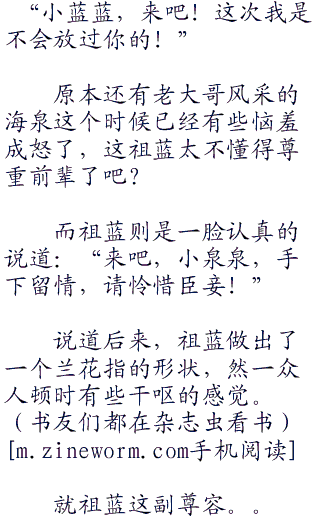 “小蓝蓝，来吧！这次我是
不会放过你的！”
原本还有老大哥风采的
海泉这个时候已经有些恼羞
成怒了，这祖蓝太不懂得尊
重前辈了吧？
而祖蓝则是一脸认真的
说道：“来吧，小泉泉，手
下留情，请怜惜臣妾！”
说道后来，祖蓝做出了
一个兰花指的形状，然一众
人顿时有些干呕的感觉。
（书友们都在杂志虫看书）
[m.zineworm.com手机阅读]
就祖蓝这副尊容。。